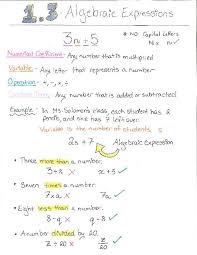 1.3 Algebraic Expressions
3n + 5
* NO Capital Letters
Numerical Coefficient - Any number that is multiplied
Variable - Any letter that represents a number
Operation - +, -, ×, ÷
Constant Term - Any number that is added or subtracted
Example: In Ms. Solomon's class, each student has 2
pencils, and she has 7 left over.
Variable is the number of students s
2s + 7 Algebraic Expression
• Three more than a number.
3 + x x + 5
• Seven times a number
• Eight less than a number.
8 - q × q - 8 ✓
• A number divided by 20.
z ÷ 20 × z/20 ✓